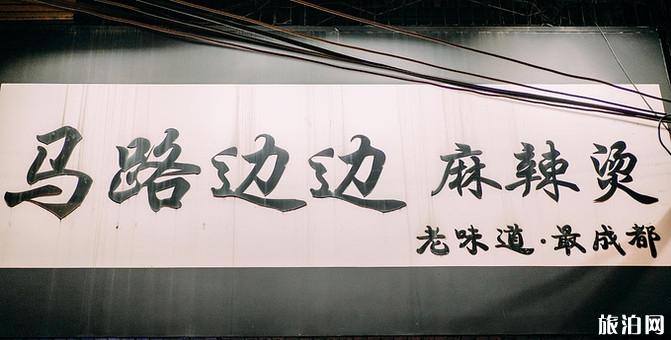 马路边边 麻辣烫
老味道·最成都
旅泊网